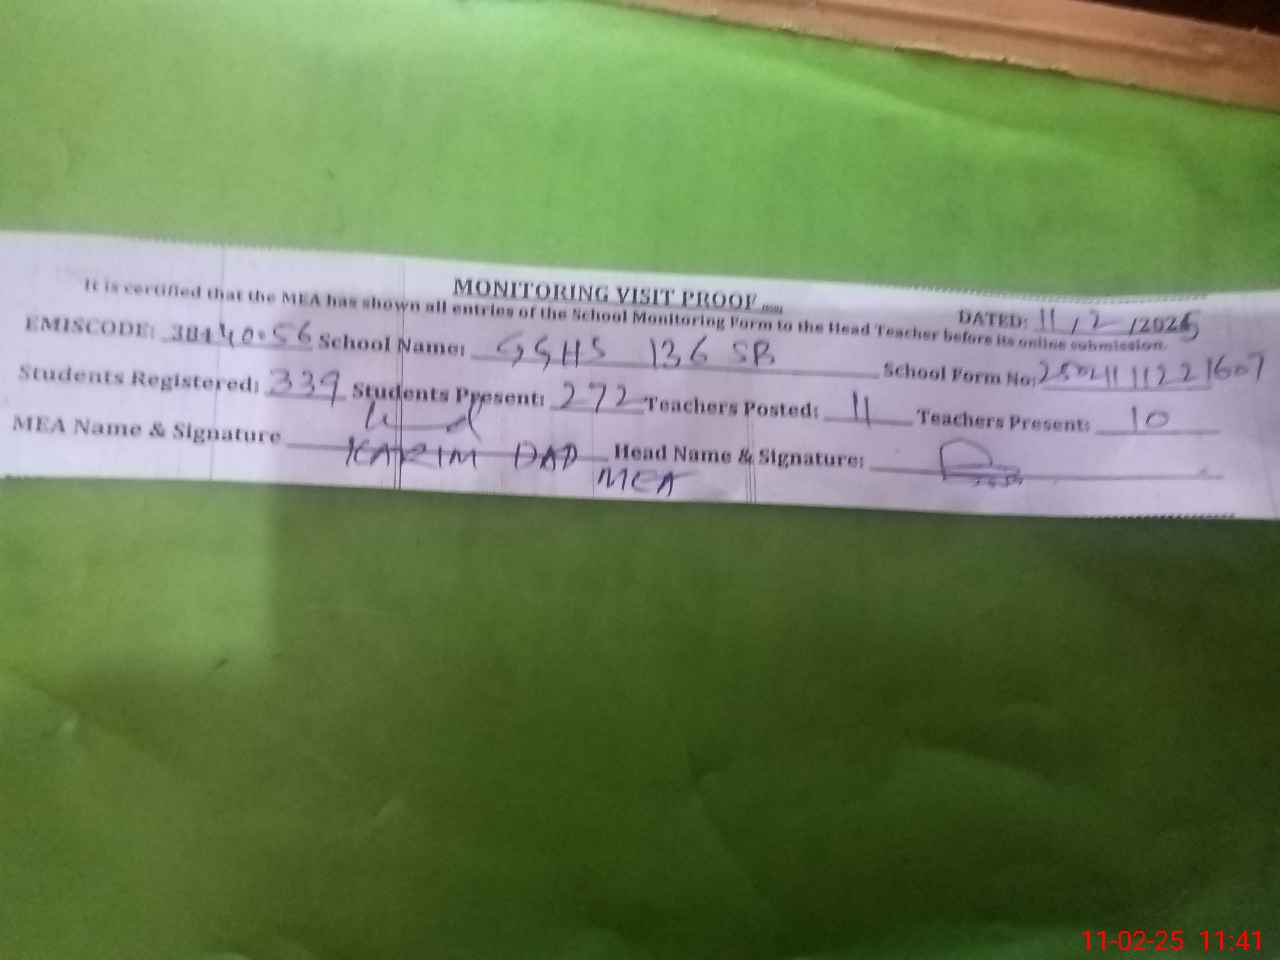 MONITORING VISIT PROOF
DATED: 11/2/2025
It is certified that the MEA has shown all entries of the School Monitoring Form to the Head Teacher before its online submission.
EMISCODE: 38440056 School Name: GGHS 136 SB School Form No: 25021111221607
Students Registered: 339 Students Present: 272 Teachers Posted: 11 Teachers Present: 10
MEA Name & Signature KARIM DAD Head Name & Signature:
MEA
11-02-25 11:41